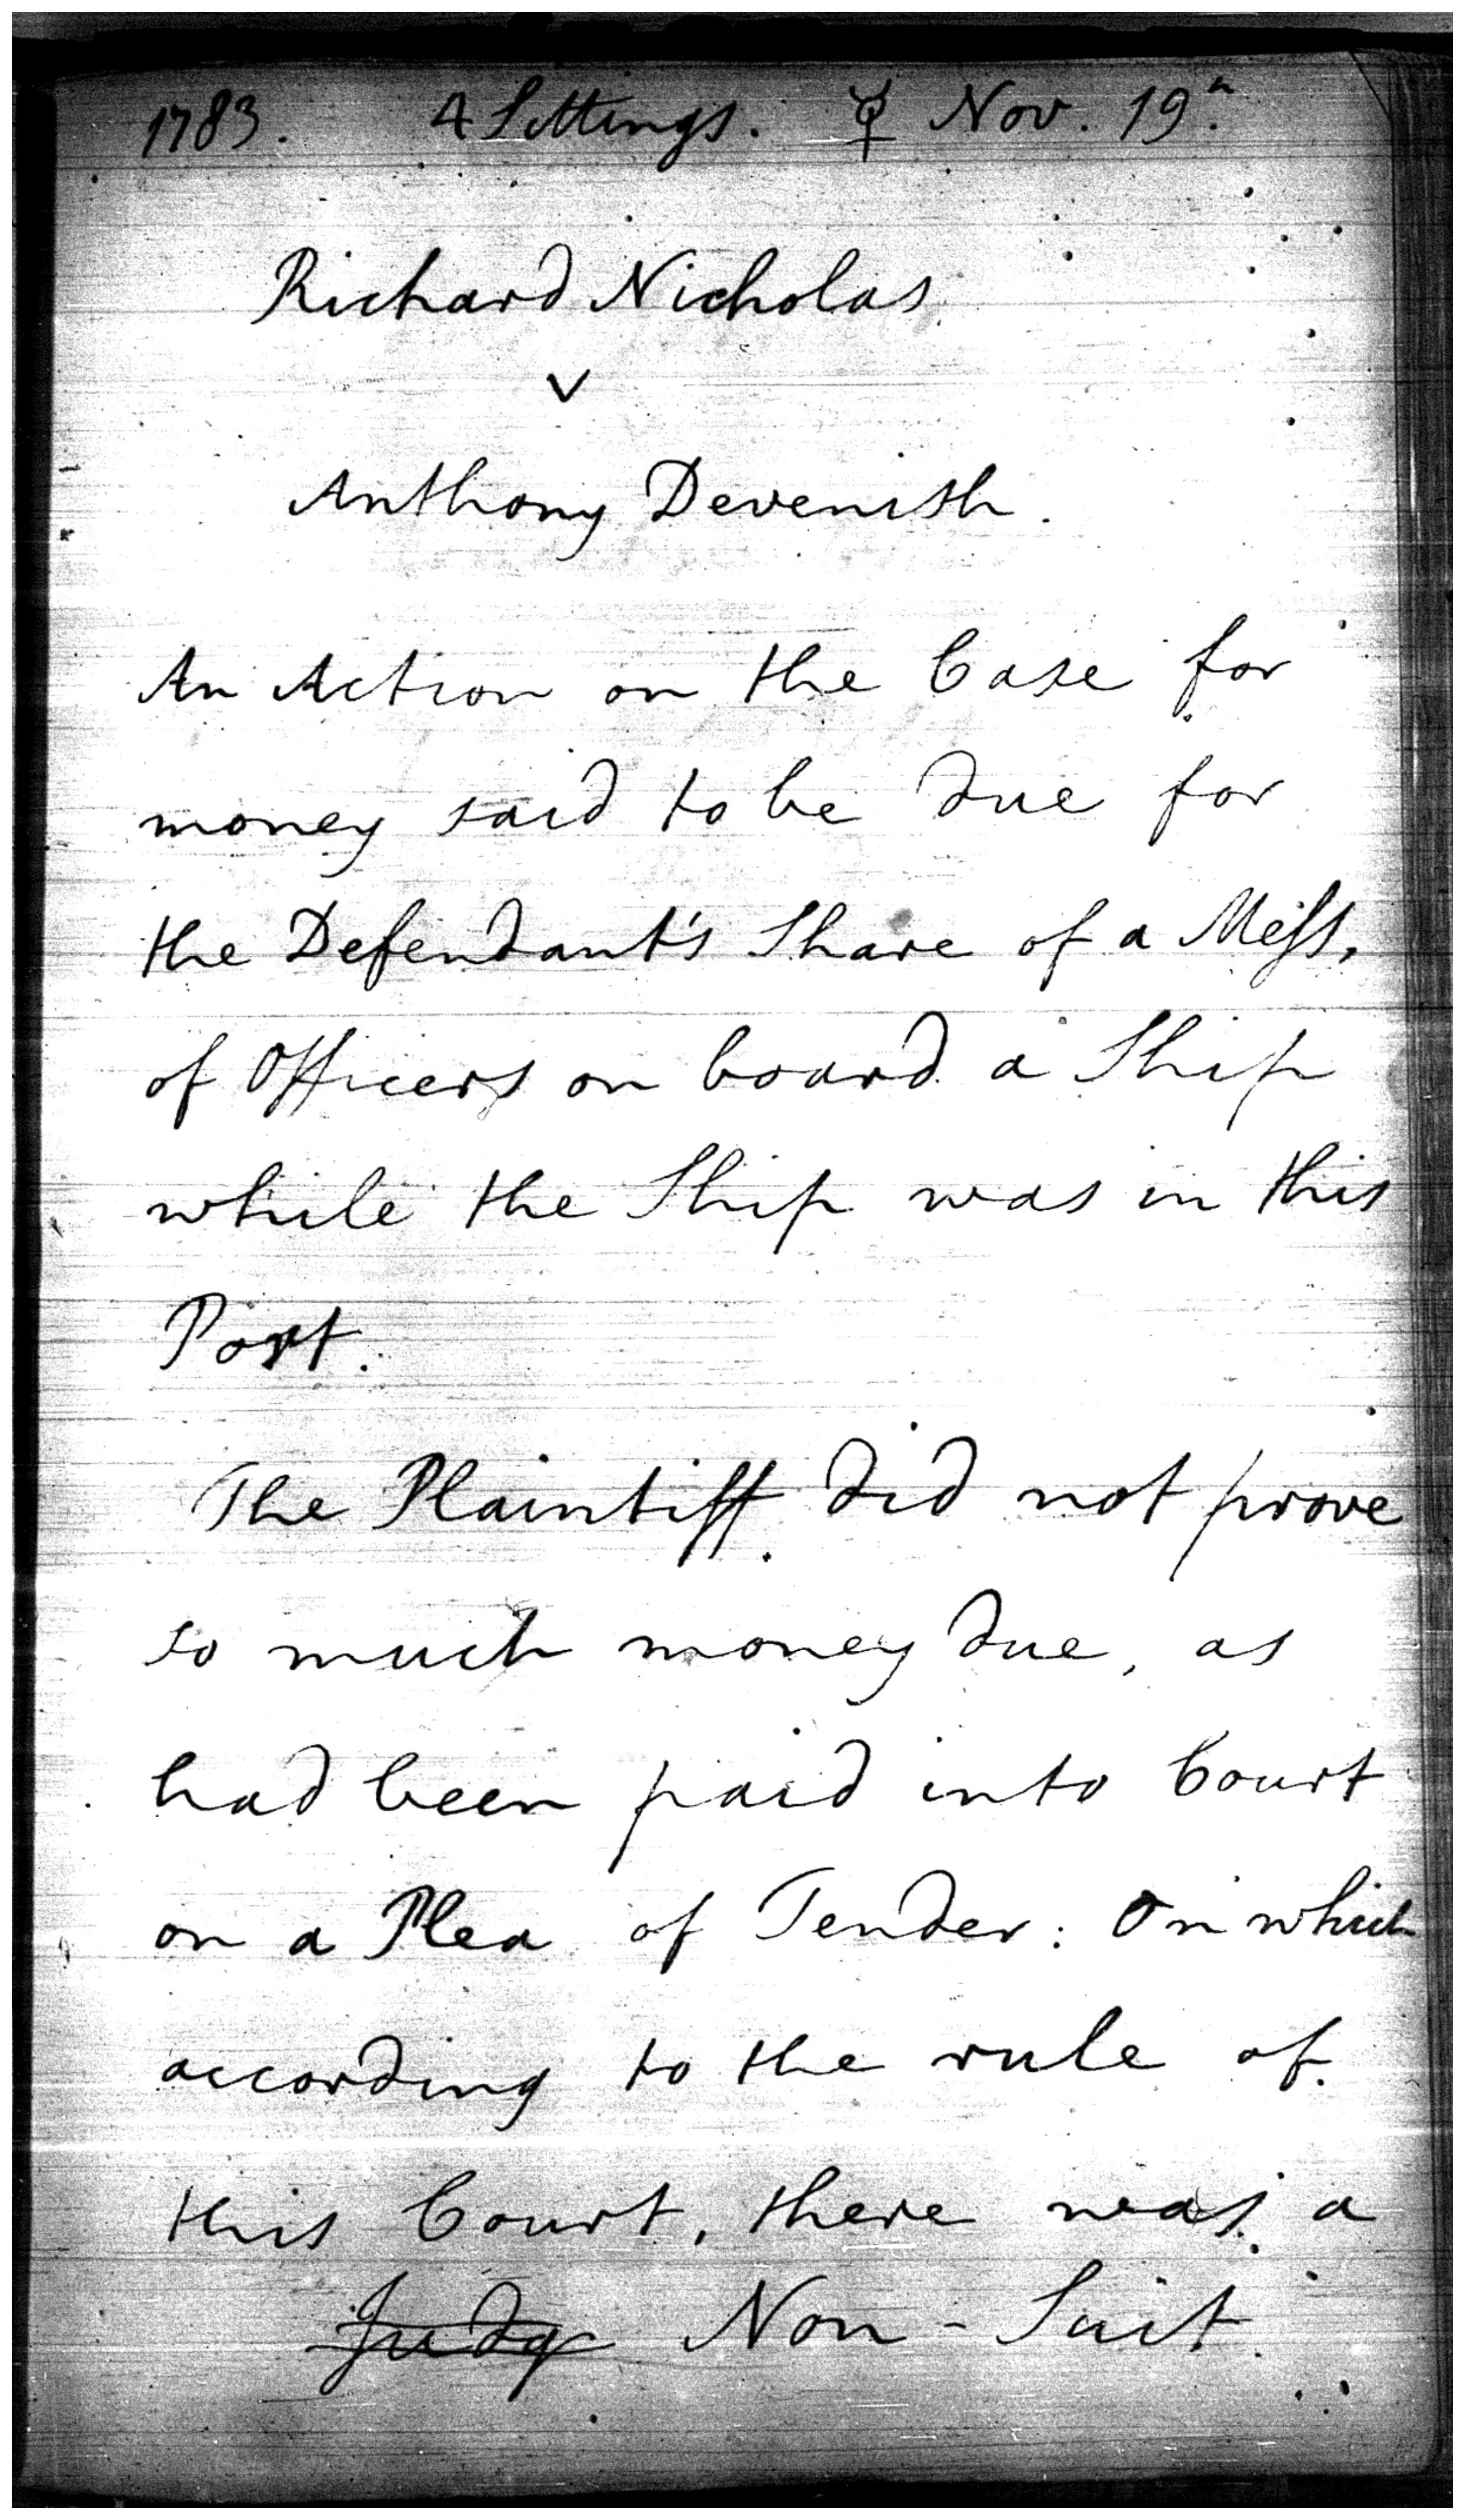 1783. 4 Sittings. ☿ Nov. 19th.
Richard Nicholas
v
Anthony Devenish.
An Action on the Case for
money said to be due for
the Defendant's Share of a Meſs,
of Officers on board a Ship
while the Ship was in this
Port.
The Plaintiff did not prove
so much money due, as
had been paid into Court
on a Plea of Tender: On which
according to the rule of
this Court, there was a
Judg Non-Suit.